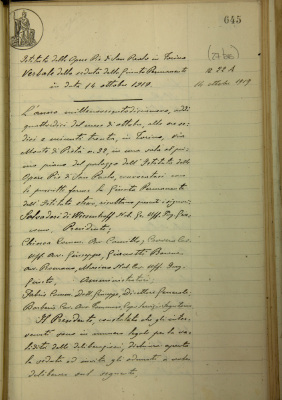 645
(27bis)
N 22 A
14 ottobre 1919
Istituto delle Opere Pie di San Paolo in Torino
Verbale della seduta della Giunta Permanente
in data 14 ottobre 1919.
L'anno millenovecentodiciannove, addì
quattordici del mese di ottobre, alle ore
dieci e minuti trenta, in Torino, via
Monte di Pietà n. 32, in una sala al pri-
mo piano del palazzo dell'Istituto delle
Opere Pie di San Paolo, convocatasi con
le prescritte forme la Giunta Permanente
dell'Istituto stesso, risultano presenti i signori:
Salvadori di Wiesenhoff Nob. Gr. Uff. Ing. Gia-
como, Presidente;
Chiesa Comm. Avv. Camillo,
Uff. Avv. Giuseppe, Gianotti Barone
Avv. Romano, Uff. Ing.
Amministratori;
Comm. Dott. Giuseppe, Direttore Generale;
Cav. Avv.
Il Presidente, constatato che gli inter-
venuti sono in numero legale per la va-
lidità delle deliberazioni, dichiara aperta
la seduta ed invita gli adunati a voler
deliberare sul seguente.